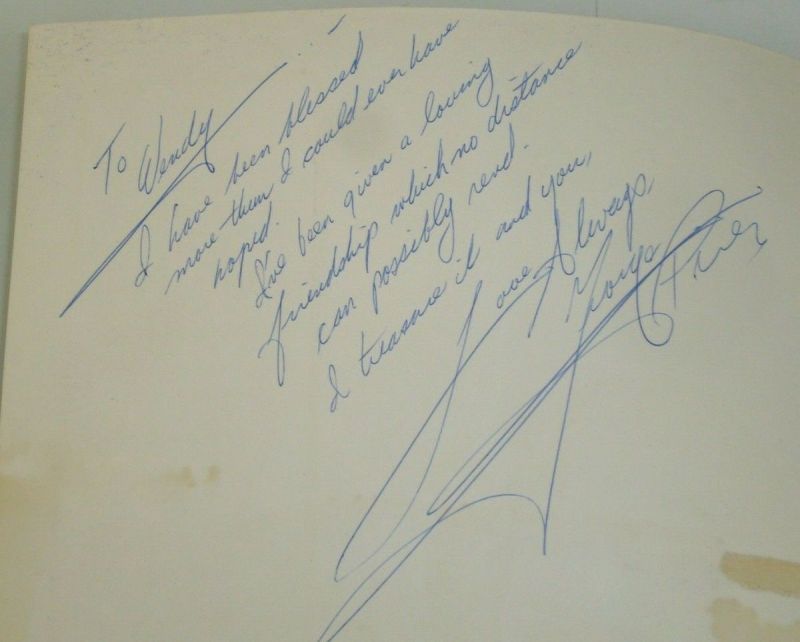 To Wendy
I have been blessed
more than I could ever have
hoped.
I've been given a loving
friendship which no distance
can possibly rend.
I treasure it and you,
Love Always